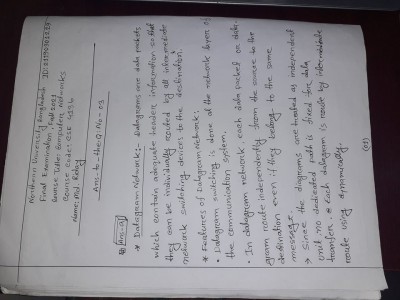 Northern University Bangladesh
Final Examination, Fall 2021
Course Title: Computer Networks
Course Code: CSE 4136
Name: Md.
Ans: to the Q. No - 03
Ans: a)
* Datagram Network:- Datagrams are data packets
which contain adequate header information so that
they can be individually routed by all intermediate
network switching devices to the destination.
* Features of Datagram Network:
• Datagram switching is done at the network layer of
the communication system.
• In datagram network each data packet or data-
gram route independently from the source to the
destination even if they belong to the same
message.
→ Since the diagrams are treated as independent
unit no dedicated path is fixed for data
transfer. * Each datagram is route by intermediate
route using dynamically.
(01)